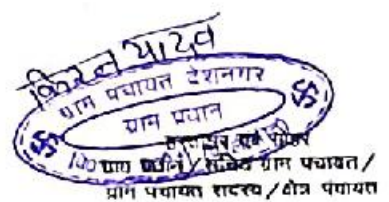 किरन यादव
ग्राम पंचायत देशनगर
ग्राम प्रधान
हस्ताक्षर एवं मोहर
ग्राम प्रधान / सचिव ग्राम पंचायत /
ग्राम पंचायत सदस्य / क्षेत्र पंचायत